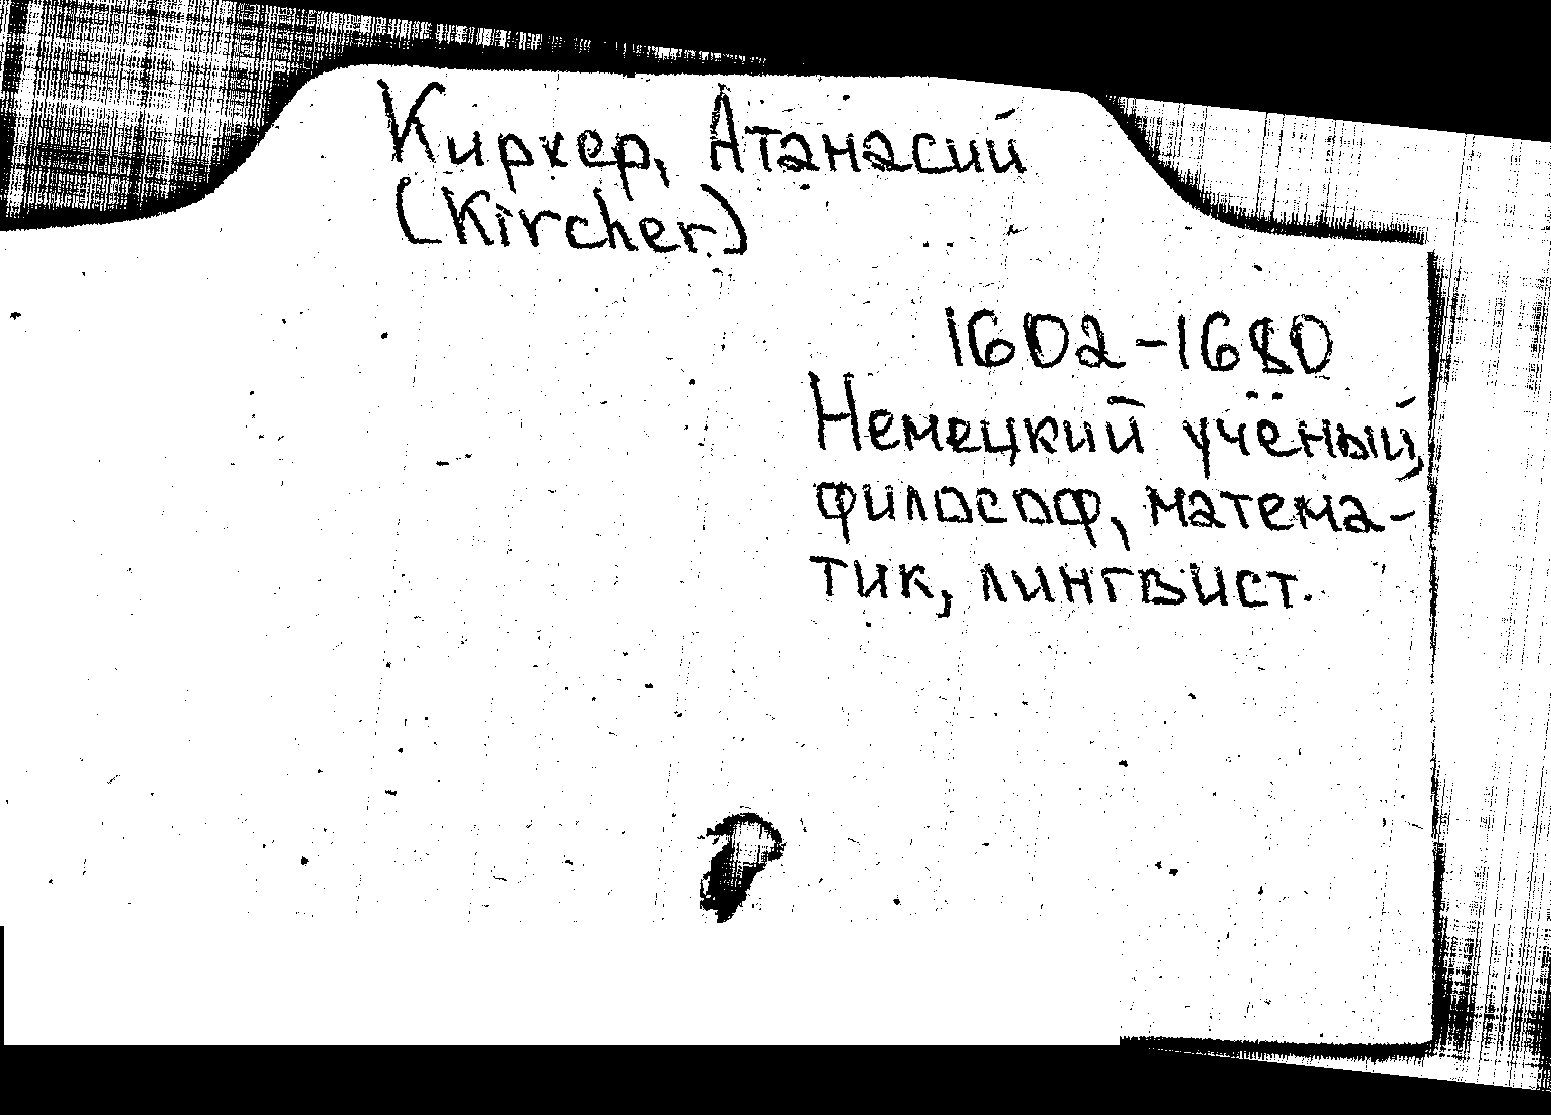 Кирхер, Атанасий
(Kircher)
1602-1680
Немецкий учёный,
философ, матема-
тик, лингвист.